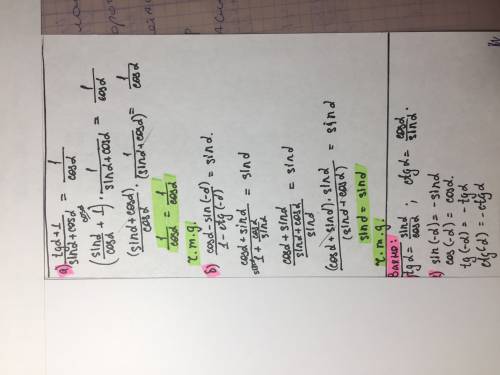 а) tgα+1 / sinα+cosα = 1/cosα
(sinα/cosα + 1) · 1/(sinα+cosα) = 1/cosα
(sinα+cosα)/cosα · 1/(sinα+cosα) = 1/cosα
1/cosα = 1/cosα
ч.т.д.
б) cosα-sin(-α) / 1-ctg(-α) = sinα.
cosα+sinα / 1+cosα/sinα = sinα
cosα+sinα / (sinα+cosα / sinα) = sinα
(cosα+sinα)·sinα / (sinα+cosα) = sinα
sinα = sinα
ч.т.д.
Важно:
tgα = sinα/cosα ; ctgα = cosα/sinα .
sin(-α) = -sinα
cos(-α) = cosα.
tg(-α) = -tgα
ctg(-α) = -ctgα